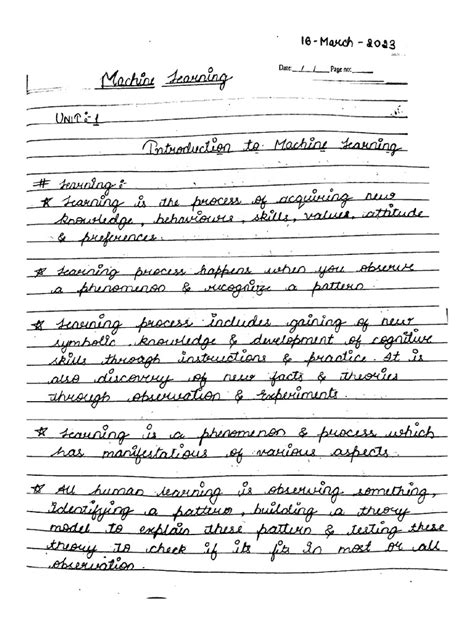 16-March-2023
Date: / / Page no:
Machine Learning
UNIT:1
Introduction to Machine Learning
# Learning:
* Learning is the process of acquiring new
knowledge, behaviours, skills, values, attitude
& preferences.
* Learning process happens when you observe
a phenomenon & recognize a pattern.
* Learning process includes gaining of new
symbolic knowledge & development of cognitive
skills through instructions & practice. It is
also discovery of new facts & theories
through observation & Experiments.
* Learning is a phenomenon & process which
has manifestations of various aspects.
* All human learning is observing something,
Identifying a pattern, building a theory
model to explain these pattern & testing these
theory to check if its fits in most or all
observation.